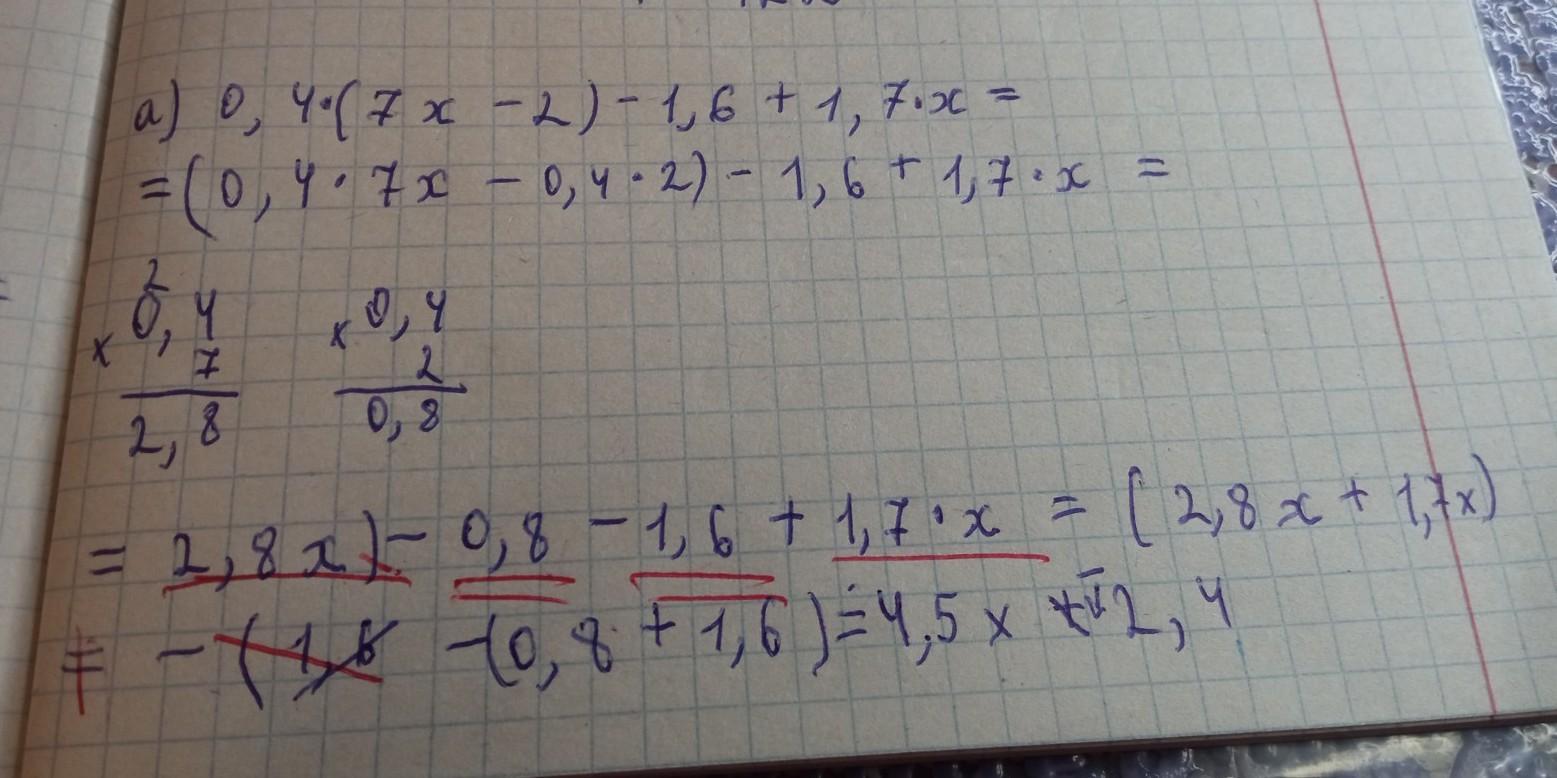 а) 0,4·(7x - 2) - 1,6 + 1,7·x =
= (0,4·7x - 0,4·2) - 1,6 + 1,7·x =
2
× 0,4 × 0,4
7 2
2,8 0,8
= 2,8x) - 0,8 - 1,6 + 1,7·x = (2,8x + 1,7x)
= - (1,6 -(0,8 + 1,6) = 4,5x - 2,4